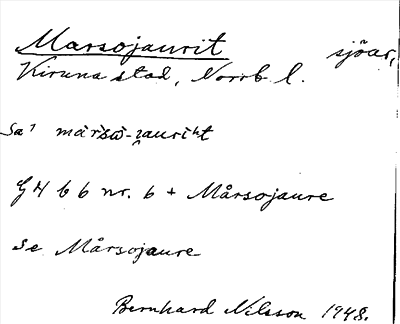 Marsojaurit sjöar,
Kiruna stad, Norrb l.
Sa¹
GH 6 b nr. 6 + Mårsojaure
Se Mårsojaure
Bernhard Nilsson 1948.